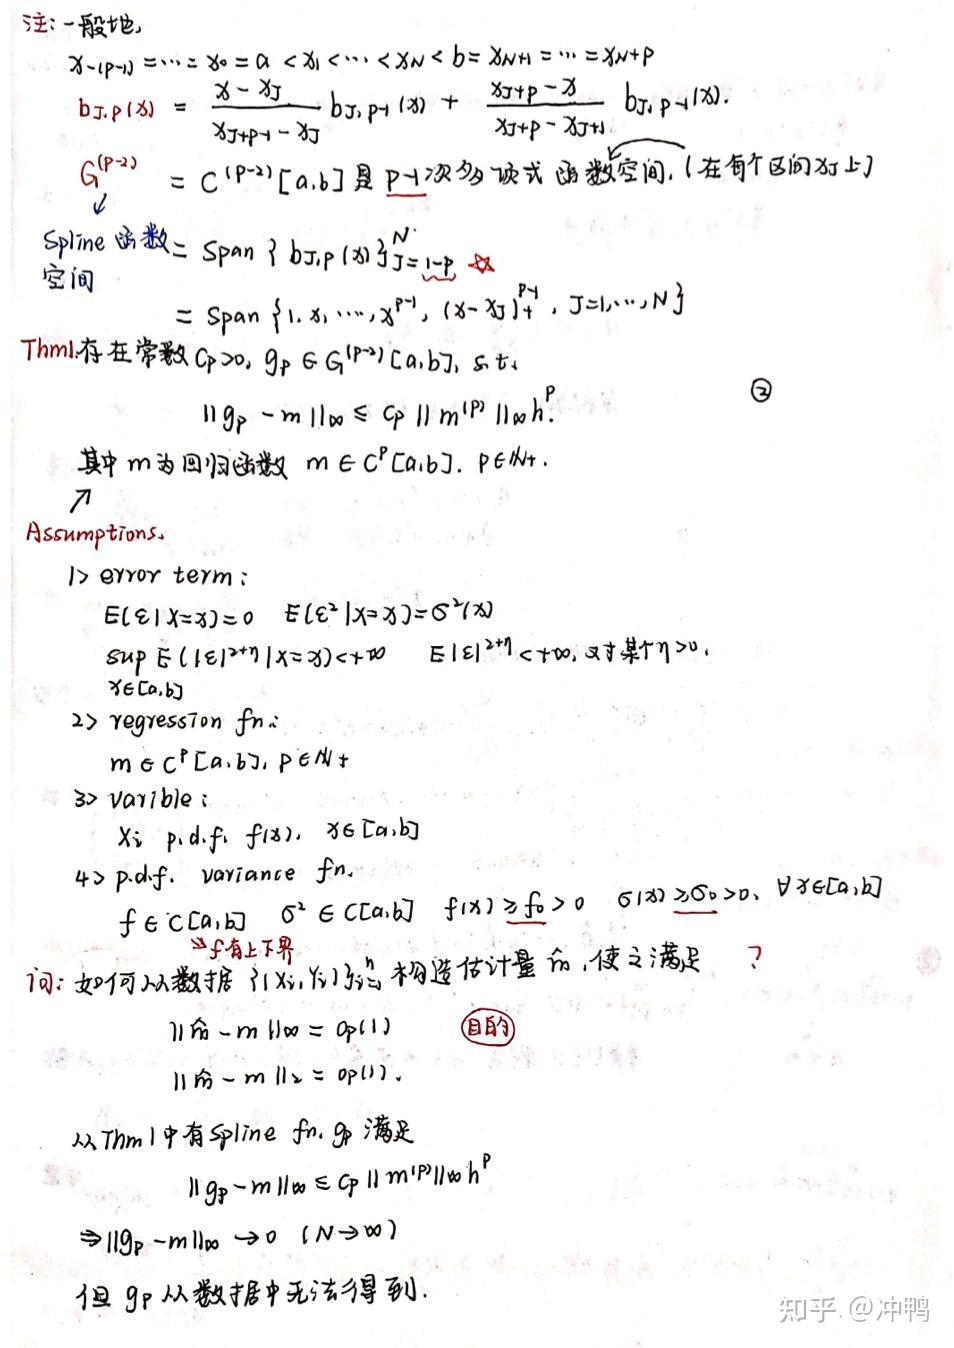 注:一般地,
x_{-(p-1)} = … = x_0 = a < x_1 < … < x_N < b = x_{N+1} = … = x_{N+p}
b_{J,p}(x) = \frac{x - x_J}{x_{J+p-1} - x_J} b_{J,p-1}(x) + \frac{x_{J+p} - x}{x_{J+p} - x_{J+1}} b_{J,p-1}(x).
G^{(p-2)} = C^{(p-2)}[a,b] 是 p-1次多项式函数空间. (在每个区间xJ上)
Spline 函数空间
= Span { b_{J,p}(x) }_{J=1-p}^{N} ☆
= Span { 1, x, …, x^{p-1}, (x-x_J)_+^{p-1}, J=1,…,N }
Thm1.存在常数 Cp>0, gp ∈ G^{(p-2)}[a,b], s.t.
||gp - m||∞ ≤ Cp ||m^{(p)}||∞ h^p. ②
其中 m为回归函数 m ∈ C^p[a,b]. p∈N+.
↗
Assumptions.
1> error term:
E(ε|X=x)=0 E(ε²|X=x)=σ²(x)
sup E(|ε|^{2+η}|X=x)<+∞ E|ε|^{2+η}<+∞, 对某个η>0.
x∈[a,b]
2> regression fn.:
m ∈ C^p[a,b], p∈N+
3> varible:
Xi p.d.f. f(x), x∈[a,b]
4> p.d.f. variance fn.
f ∈ C[a,b] σ² ∈ C[a,b] f(x) ≥ f0 > 0 σ(x) ≥ σ0 > 0, ∀x∈[a,b]
⇒ f有上下界
问: 如何从数据 {(Xi,Yi)}_{i=1}^{n} 构造估计量 m̂, 使之满足 ?
||m̂ - m||∞ = op(1) 目的
||m̂ - m||₂ = op(1).
从Thm1中有Spline fn. gp 满足
||gp - m||∞ ≤ Cp ||m^{(p)}||∞ h^p
⇒ ||gp - m||∞ → 0 (N→∞)
但 gp 从数据中无法得到.
知乎 @冲鸭